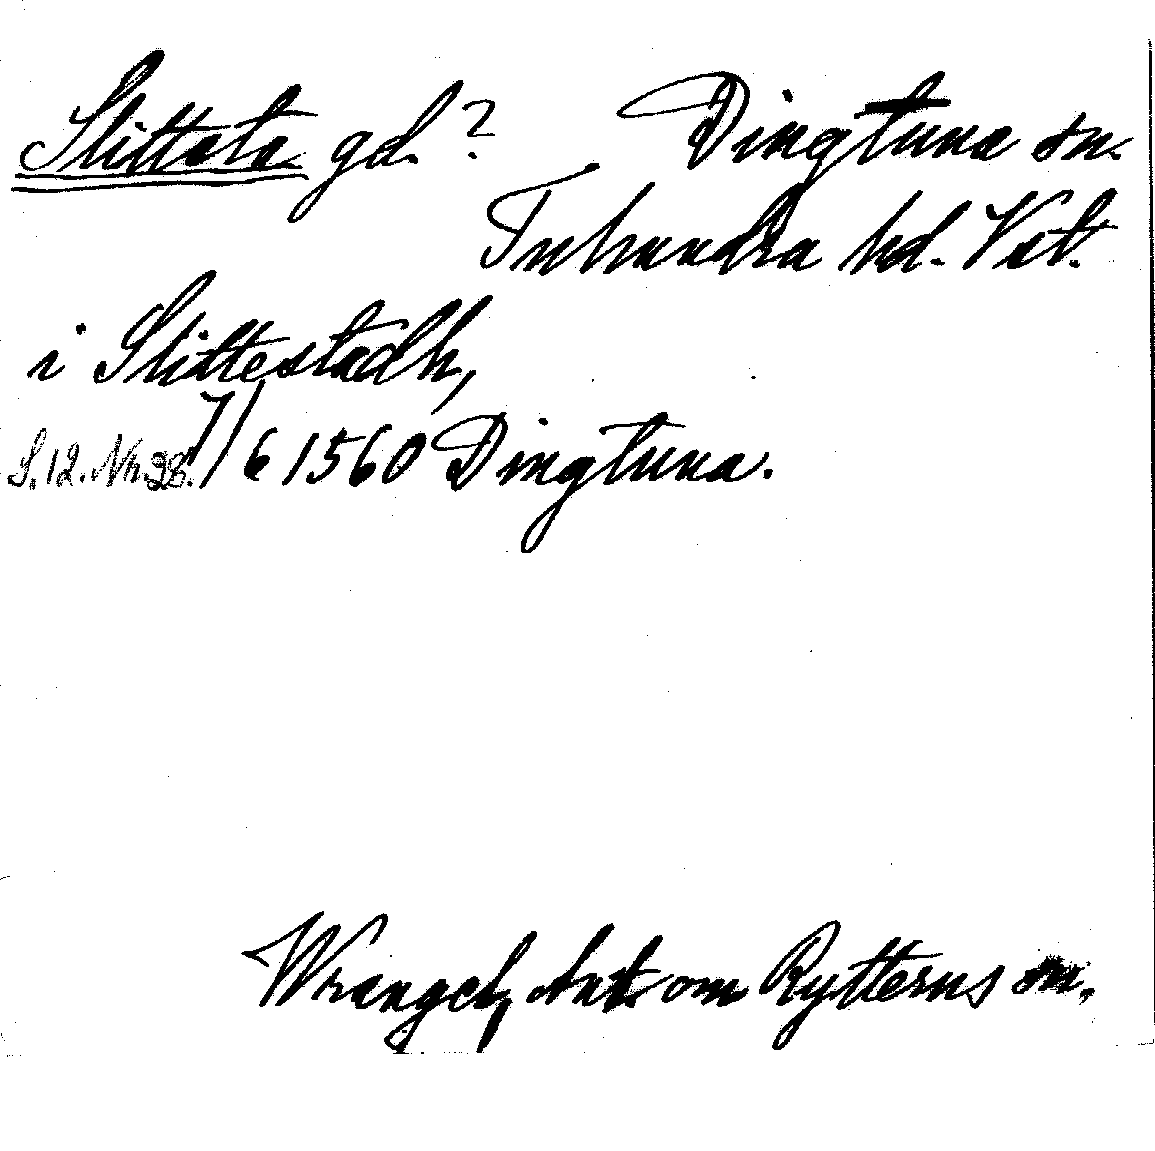 Slittsta gd. ? Dingtuna sn.
Tuhundra hd. Vstl.
i Slittestadh,
S.12. Nr.38. 7/6 1560 Dingtuna.
Wrangel, Ant. om Rytterns sn.